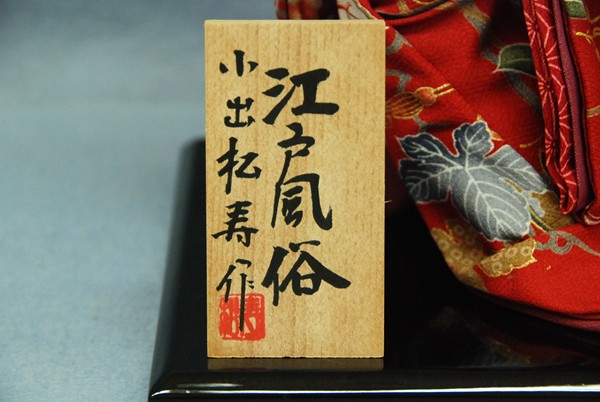 江戸風俗
小出松寿作